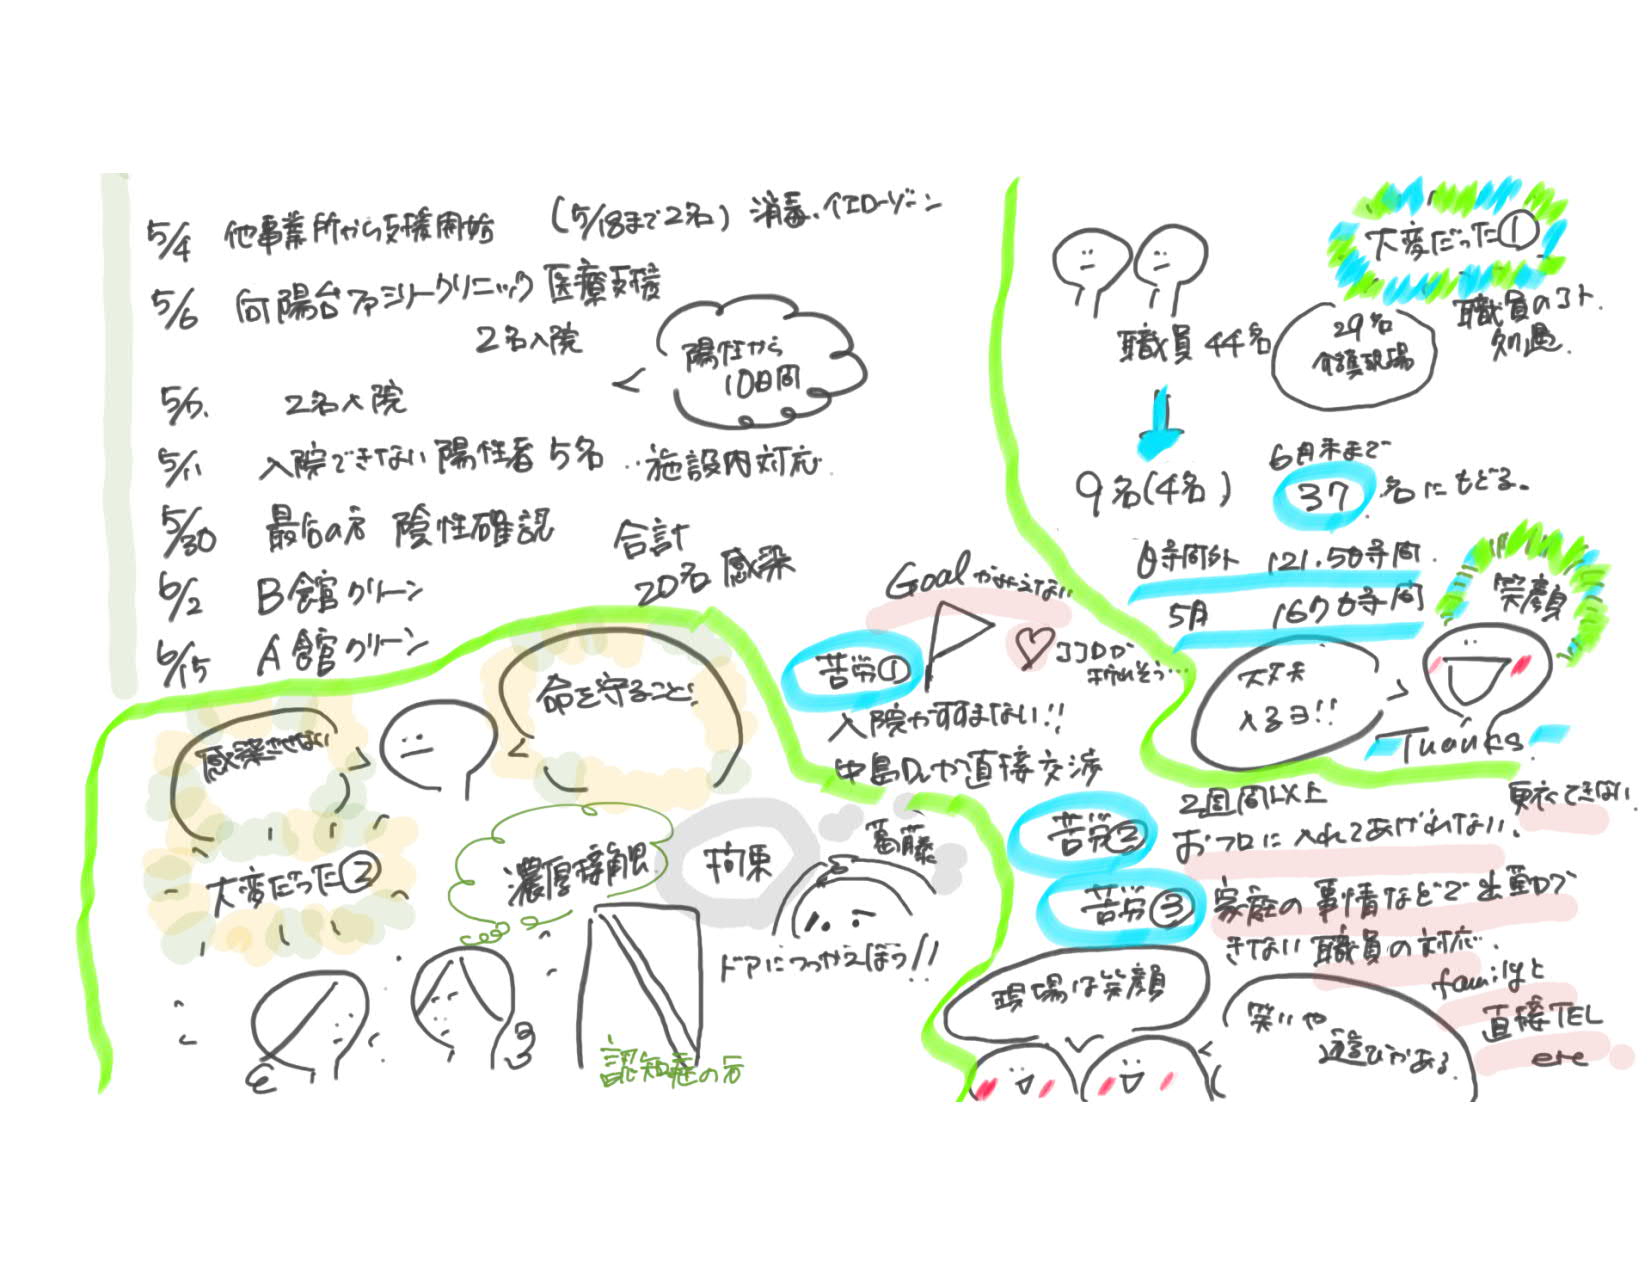 5/4 他事業所から支援開始 (5/18まで2名) 消毒、イエローゾーン
5/6 向陽台ファミリークリニック 医療支援
2名入院
陽性から
10日間
5/7. 2名入院
5/11 入院できない陽性者5名 ‥施設内対応
5/30 最后の方 陰性確認
合計
20名感染
6/2 B館グリーン
6/15 A館グリーン
大変だった①
職員のコト.
職員44名
29名
9名(4名)
6月末まで
37名にもどる。
時間外 121.5時間.
5月 167時間
笑顔
大丈夫
Thanks
Goalがみえない
苦労①
ココロが
入院がすすまない!!
中島Drが直接交渉
感染させない
命を守ること!
大変だった②
濃厚接触
拘束
葛藤
ドアにつっかえぼう!!
認知症の方
苦労②
2週間以上
おフロに入れてあげれない.
更衣できない
苦労③
家庭の事情などで出勤が
できない職員の対応.
familyと
直接TEL
現場は笑顔
笑いや
遊びがある.